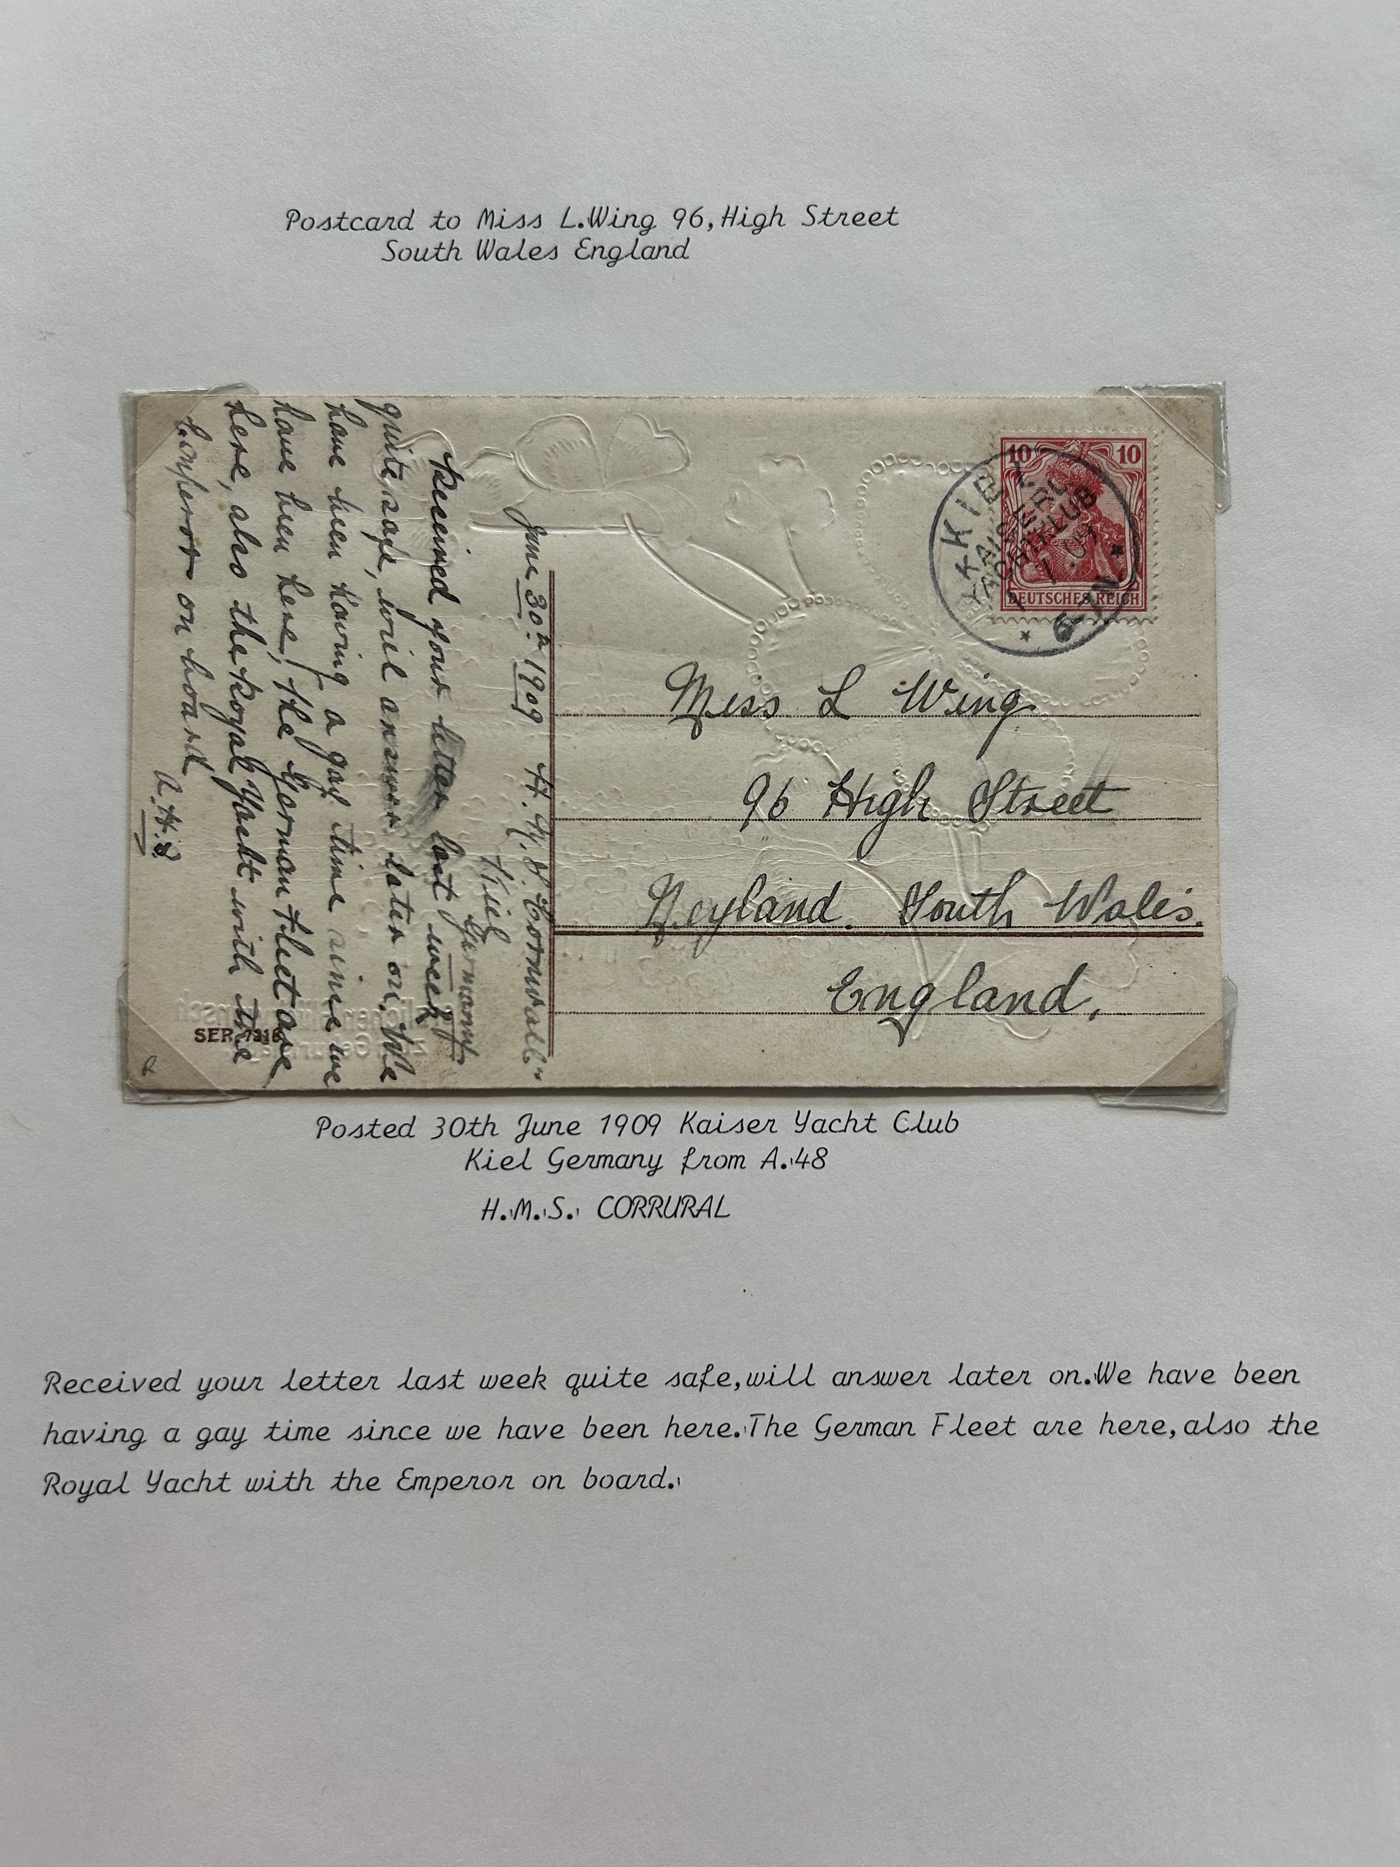 Postcard to Miss L.Wing 96,High Street
South Wales England
10 10
KIEL
KAISERL.
YACHTKLUB
DEUTSCHES REICH
Miss L Wing
96 High Street
Neyland. South Wales.
England.
June 30th 1909 H.M.S. Cornwall"
Kiel
Germany
Received your letter last week
quite safe, will answer later on. We
have been having a gay time since we
have been here, the German Fleet are
here, also the Royal Yacht with the
Emperor on board
SER.
Posted 30th June 1909 Kaiser Yacht Club
Kiel Germany from A.48
H.M.S. CORRURAL
Received your letter last week quite safe,will answer later on.We have been
having a gay time since we have been here.The German Fleet are here,also the
Royal Yacht with the Emperor on board.